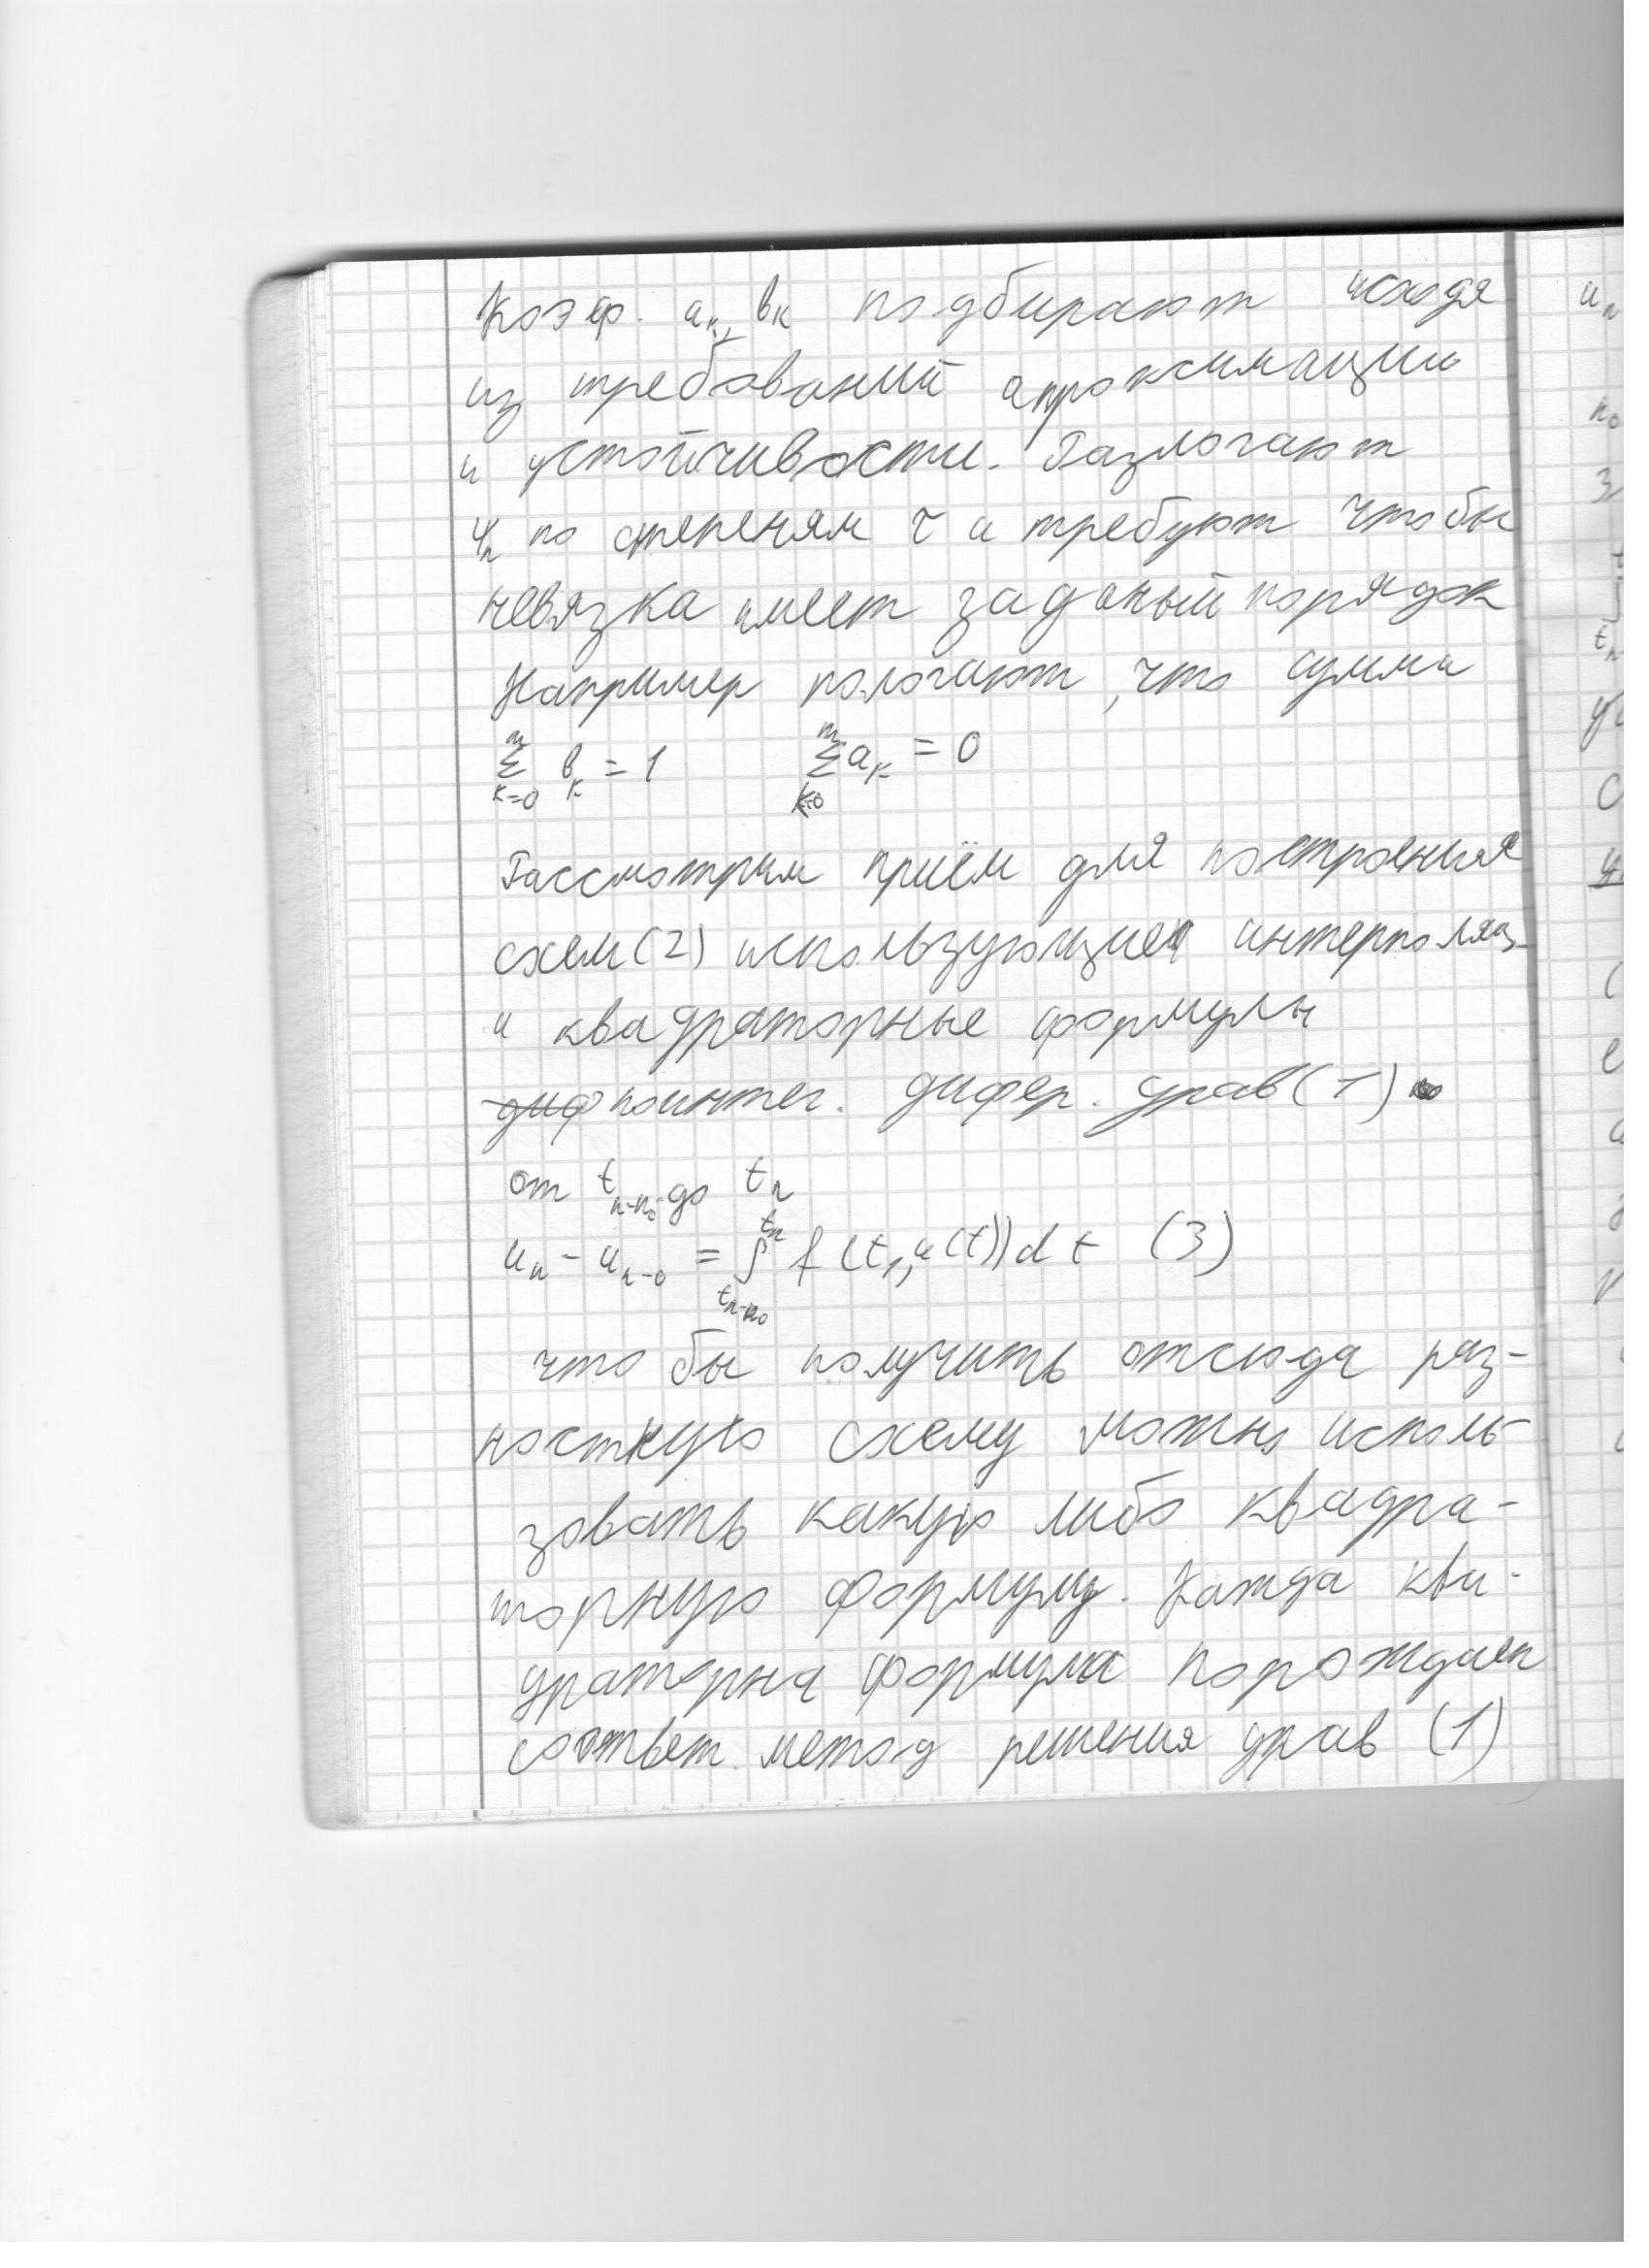 Коэф. aₖ, вₖ подбирают исходя
из требований апроксимации
и устойчивости. Разлогают
ψₙ по степеням τ и требуют чтобы
невязка имеет заданый порядок
Например пологают, что сумма
∑ₖ₌₀ᵐ вₖ = 1    ∑ₖ₌₀ᵐ aₖ = 0
Рассмотрим приём для построения
схем (2) использующие интерполяц.
и квадраторные формулы
поинтег. дифер. урав (1)
от tₙ₋ₙ₀ до tₙ
uₙ - uₙ₋₀ = ∫ f (t, u(t)) dt (3)
tₙ
tₙ₋ₙ₀
что бы получить отсюда раз-
ностную схему можно исполь-
зовать какую либо квадра-
торную формулу. Кажда ква-
драторна формула порождает
соответ. метод решения урав (1)
uₙ
n₀
tₙ